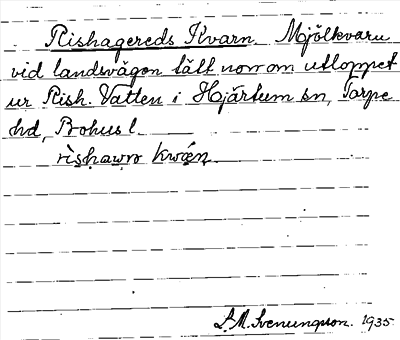 Rishagereds Kvarn. Mjölkvarn
vid landsvägen tätt norr om utloppet
ur Rish. Vatten i Hjärtum sn, Torpe
hd, Bohusl.
L. M. Svenungsson. 1935